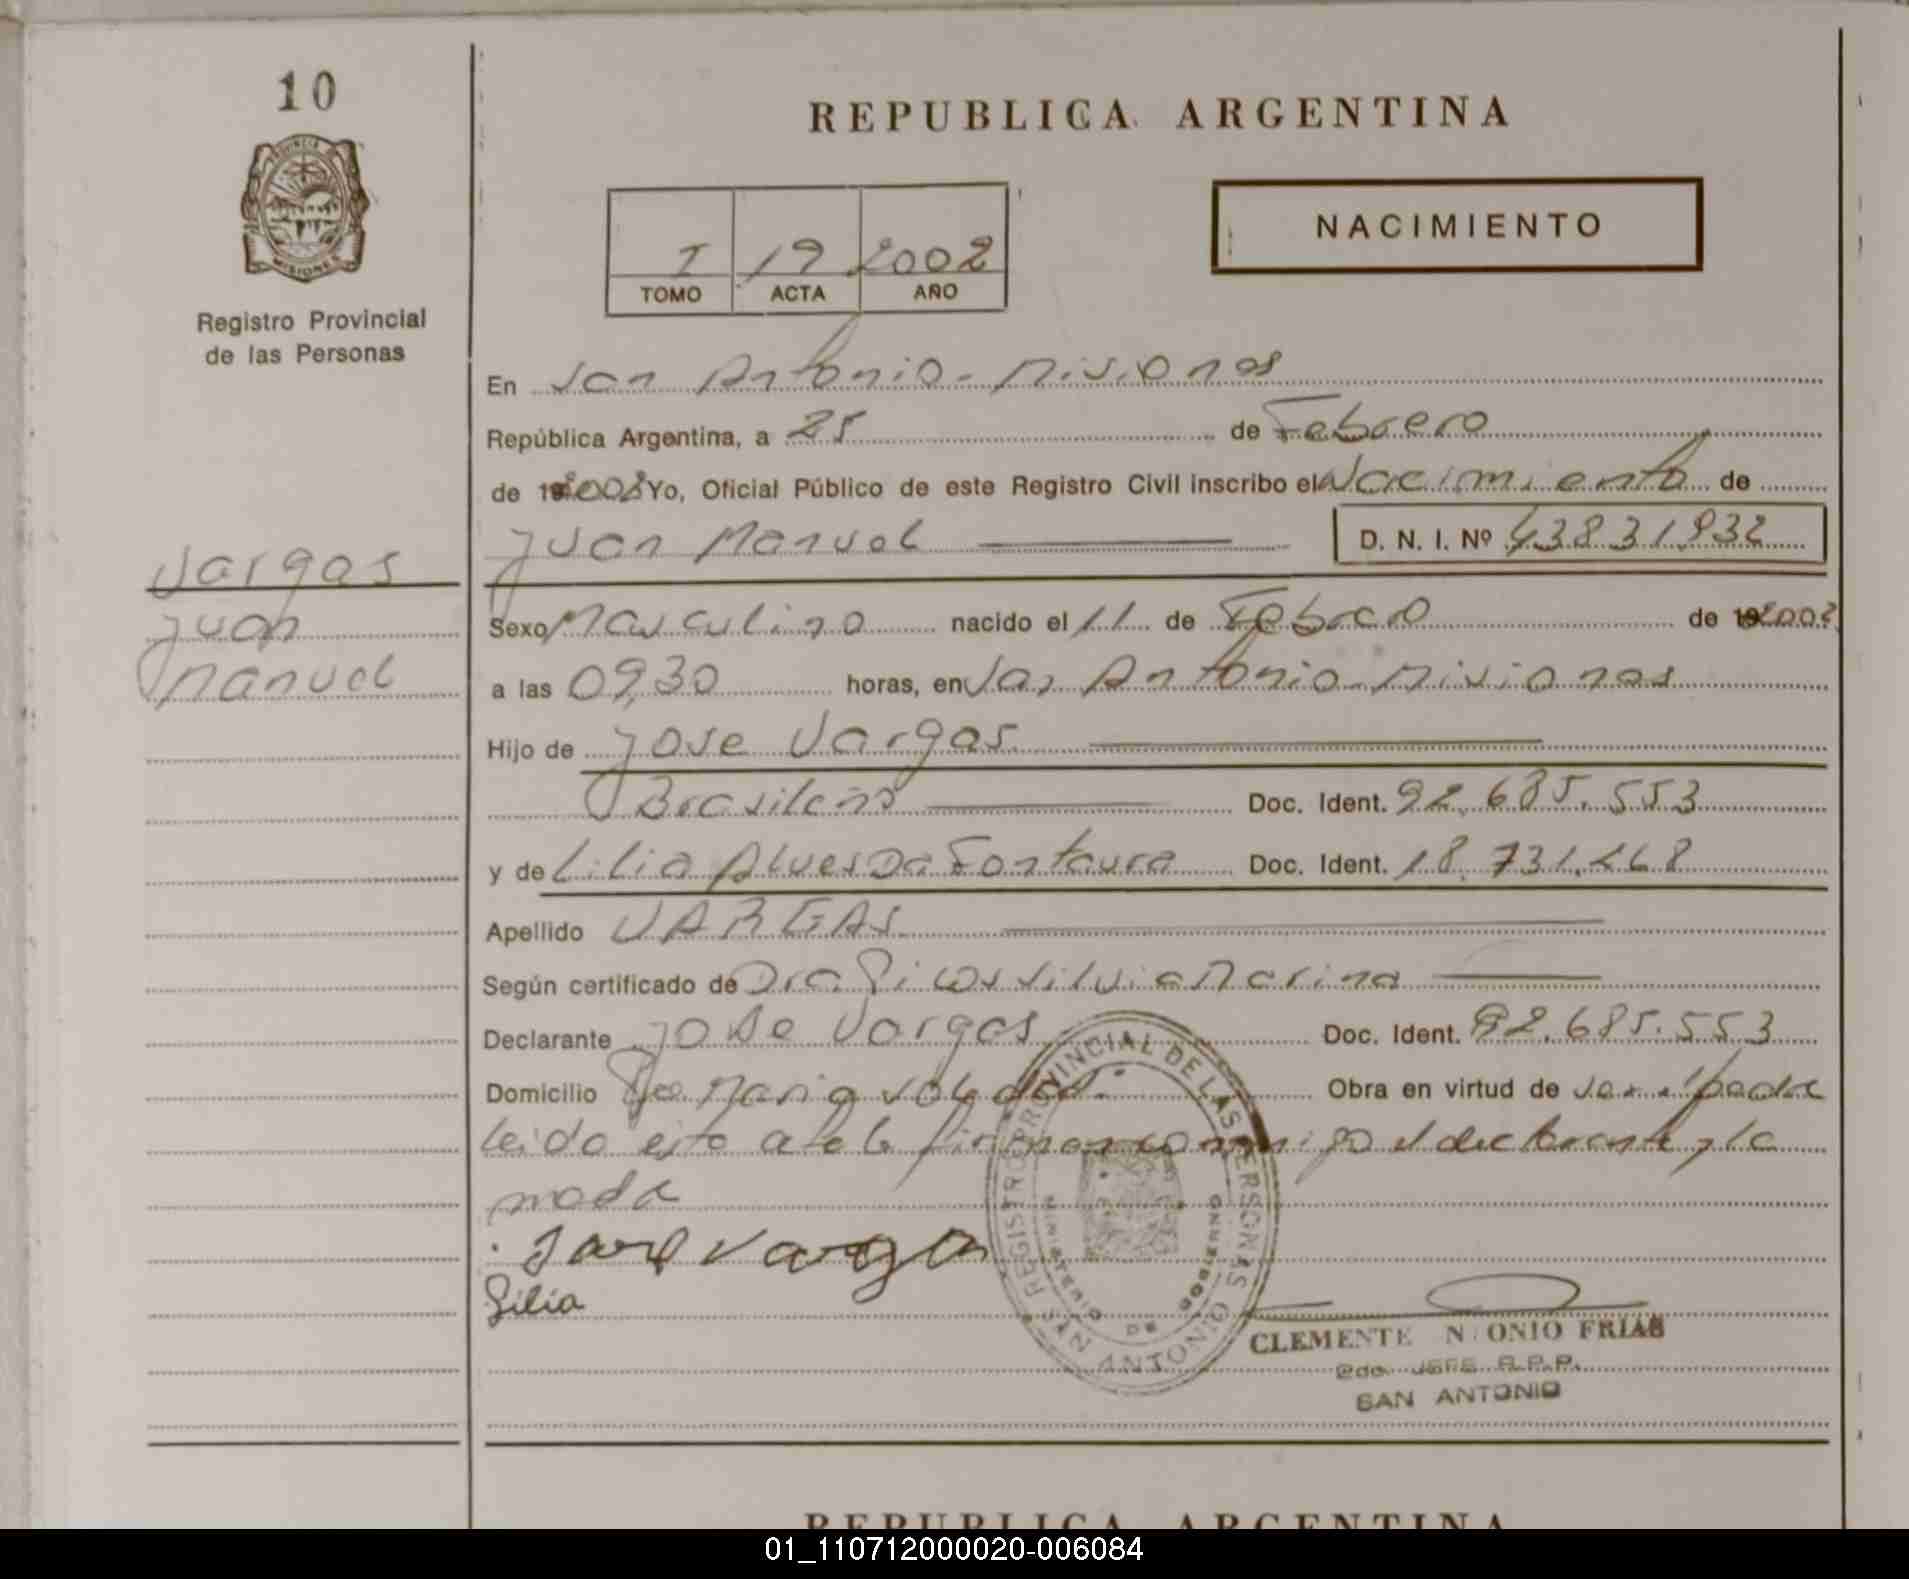 10
PROVINCIA DE
MISIONES
Registro Provincial
de las Personas
REPUBLICA ARGENTINA
I 19 2002
TOMO ACTA AÑO
NACIMIENTO
En San Antonio - Misiones
República Argentina, a 25 de Febrero
de 2002 Yo, Oficial Público de este Registro Civil inscribo el Nacimiento de
Juan Manuel D. N. I. Nº 43831932
Vargas
Juan
Manuel
Sexo Masculino nacido el 11 de Febrero de 2002
a las 09,30 horas, en San Antonio - Misiones
Hijo de Jose Vargas
Brasileño Doc. Ident. 92.685.553
y de Lilia Alves Da Fontaura Doc. Ident. 18.731.468
Apellido VARGAS
Según certificado de Dra. Silvia Marina
Declarante Jose Vargas Doc. Ident. 92.685.553
Domicilio Obra en virtud de ser el padre
leido este acta la firman conmigo el declarante y la
madre
Jose Vargas
Lilia
REGISTRO PROVINCIAL DE LAS PERSONAS
MINISTERIO DE GOBIERNO
SAN ANTONIO
CLEMENTE N ONIO FRIAS
2do. JEFE R.P.P.
SAN ANTONIO
REPUBLICA ARGENTINA
01_110712000020-006084